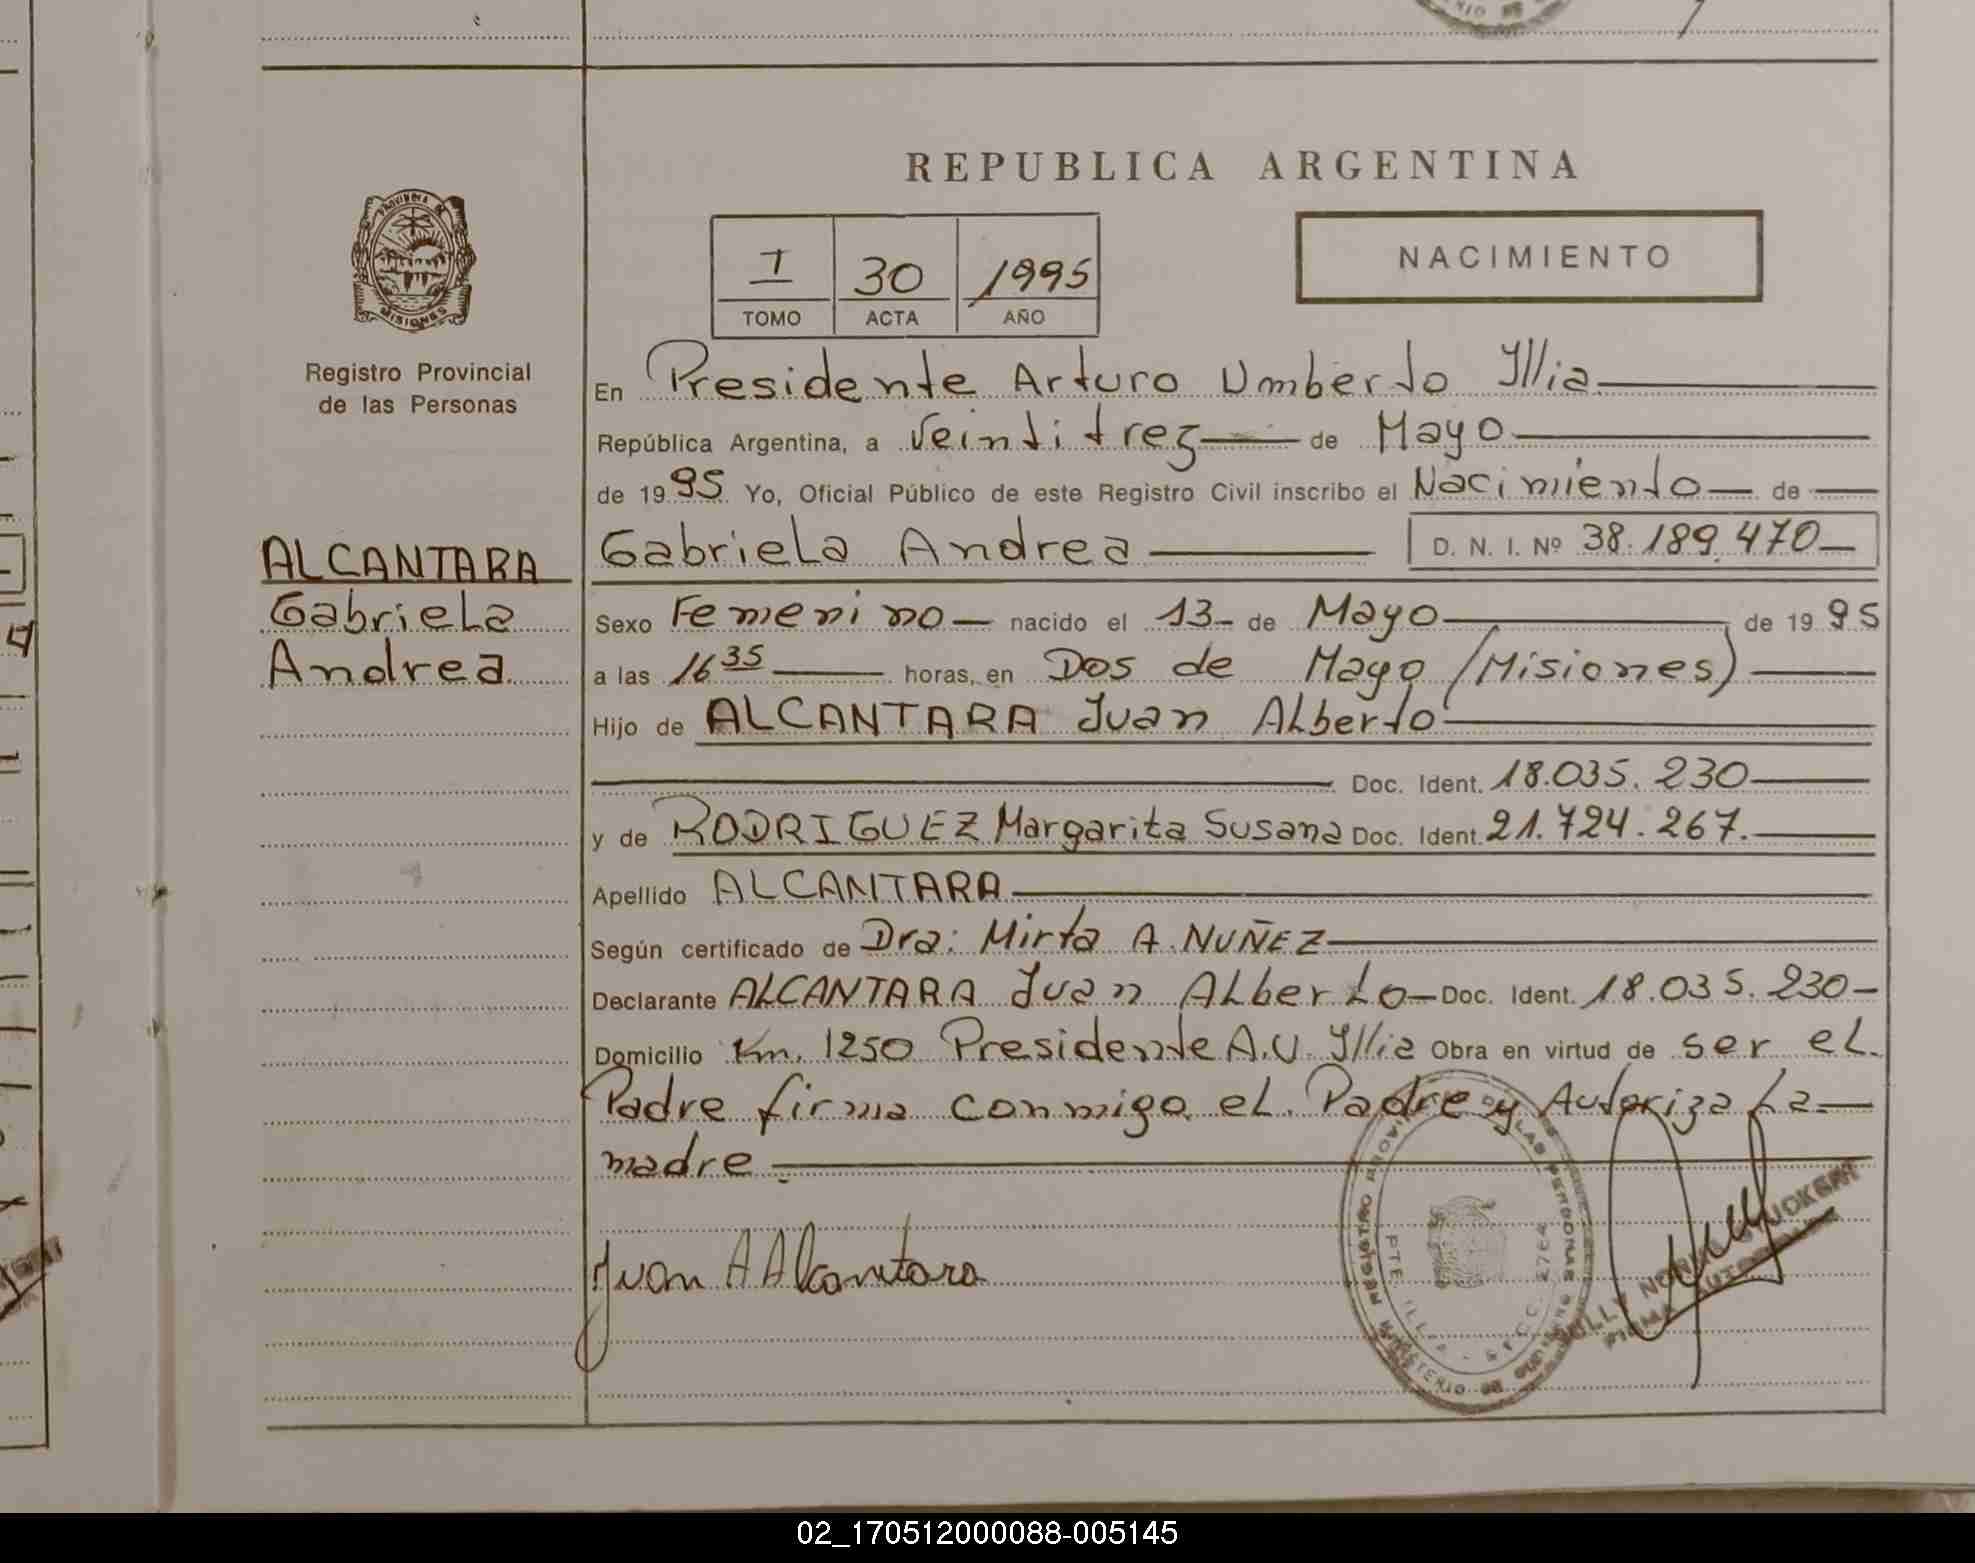 REPUBLICA ARGENTINA
PROVINCIA DE
MISIONES
Registro Provincial
de las Personas
I 30 1995
TOMO ACTA AÑO
NACIMIENTO
En Presidente Arturo Umberto Illia
República Argentina, a Veintitrez de Mayo
de 1995 Yo, Oficial Público de este Registro Civil inscribo el Nacimiento de
ALCANTARA
Gabriela
Andrea
Gabriela Andrea D. N. I. Nº 38.189.470
Sexo Femenino nacido el 13 de Mayo de 1995
a las 16 35 horas, en Dos de Mayo (Misiones)
Hijo de ALCANTARA Juan Alberto
Doc. Ident. 18.035.230
y de RODRIGUEZ Margarita Susana Doc. Ident. 21.724.267.
Apellido ALCANTARA
Según certificado de Dra: Mirta A. NUÑEZ
Declarante ALCANTARA Juan Alberto Doc. Ident. 18.035.230
Domicilio Km. 1250 Presidente A.U. Illia Obra en virtud de ser el
Padre firma conmigo el Padre y Autoriza La
madre
Juan A Alcantara
REGISTRO PROVINCIAL DE LAS PERSONAS
PTE. ILLIA
2764
MINISTERIO DE
FIRMA AUTORIZADA
02_170512000088-005145